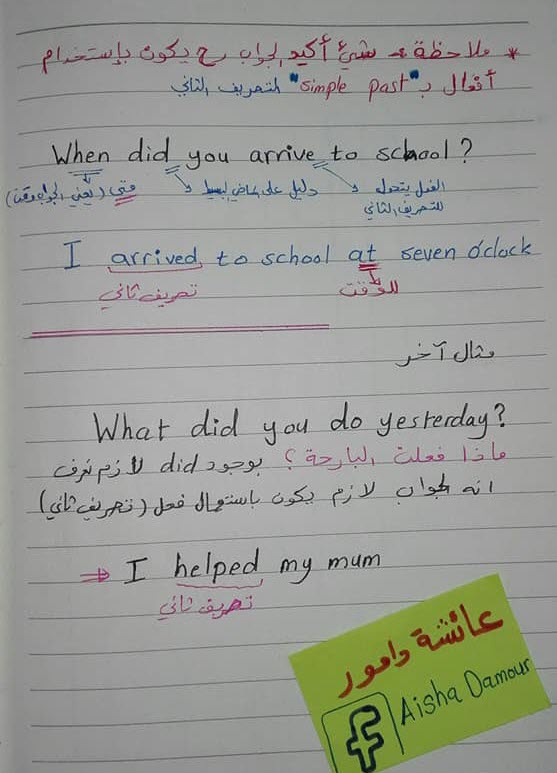 * ملاحظة ← شيئ أكيد الجواب رح يكون بإستخدام
أفعال بـ "simple past" التصريف الثاني
When did you arrive to school?
متى (يعني الجواب وقت) دليل على الماضي البسيط الفعل يتحول
للتصريف الثاني
I arrived to school at seven o'clock
تصريف ثاني للوقت
مثال آخر
What did you do yesterday?
ماذا فعلت البارحة؟ بوجود did لازم نعرف
انه الجواب لازم يكون باستعمال فعل (تصريف ثاني)
⇒ I helped my mum
تصريف ثاني
عائشة دامور
f Aisha Damour